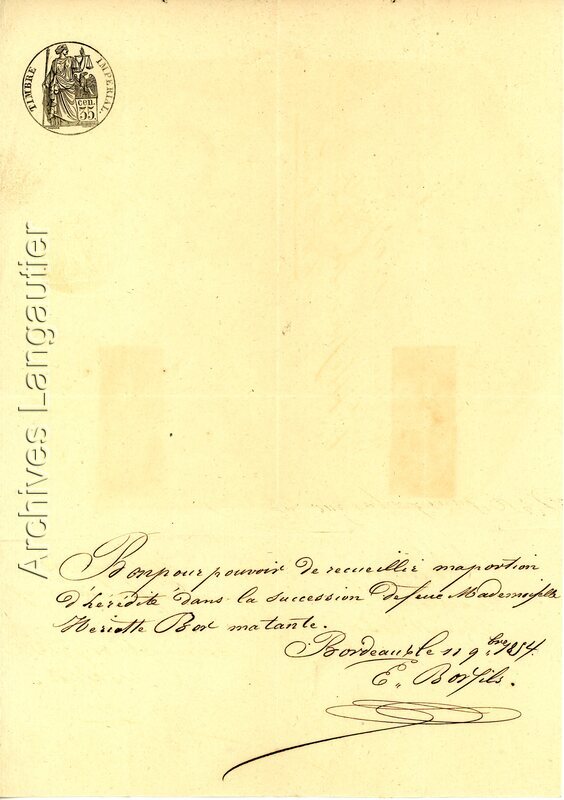 TIMBRE IMPERIAL.
cen.
35
Archives Langautier
Bon pour pouvoir de recueillir ma portion
d'hérédité dans la succession de feue Mademoiselle
Heriette Bor ma tante.
Bordeaux le 11 9.bre 1854.
E. Bor fils.